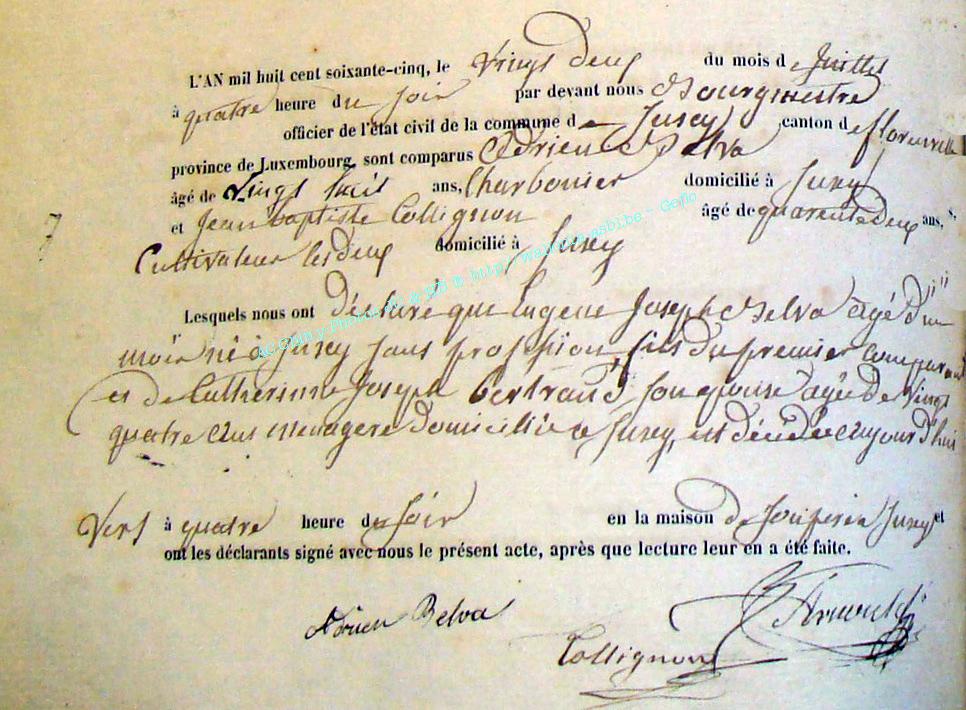 L'AN mil huit cent soixante-cinq, le Vingt deux du mois de Juillet
à quatre heure du soir par devant nous Bourgmestre
officier de l'état civil de la commune de Jusey canton de florenville
province de Luxembourg, sont comparus Adrien Belva
âgé de Vingt huit ans, Charbonier domicilié à Jusey
et Jean baptiste Collignon âgé de quarente deux ans,
Cultivateur les deux domicilié à Jusey
7
Lesquels nous ont déclaré que Eugene Joseph Belva agé d'un
mois né à Jusey sans profession, fils du premier comparant
et de Catherinne Joseph Bertrand son epouse agée de Vingt
quatre ans menagere domiciliée a Jusey, est décédée aujourd'hui
Vers à quatre heure du soir en la maison de son pere a Jusey et
ont les déclarants signé avec nous le présent acte, après que lecture leur en a été faite.
Adrien Belva
Collignon